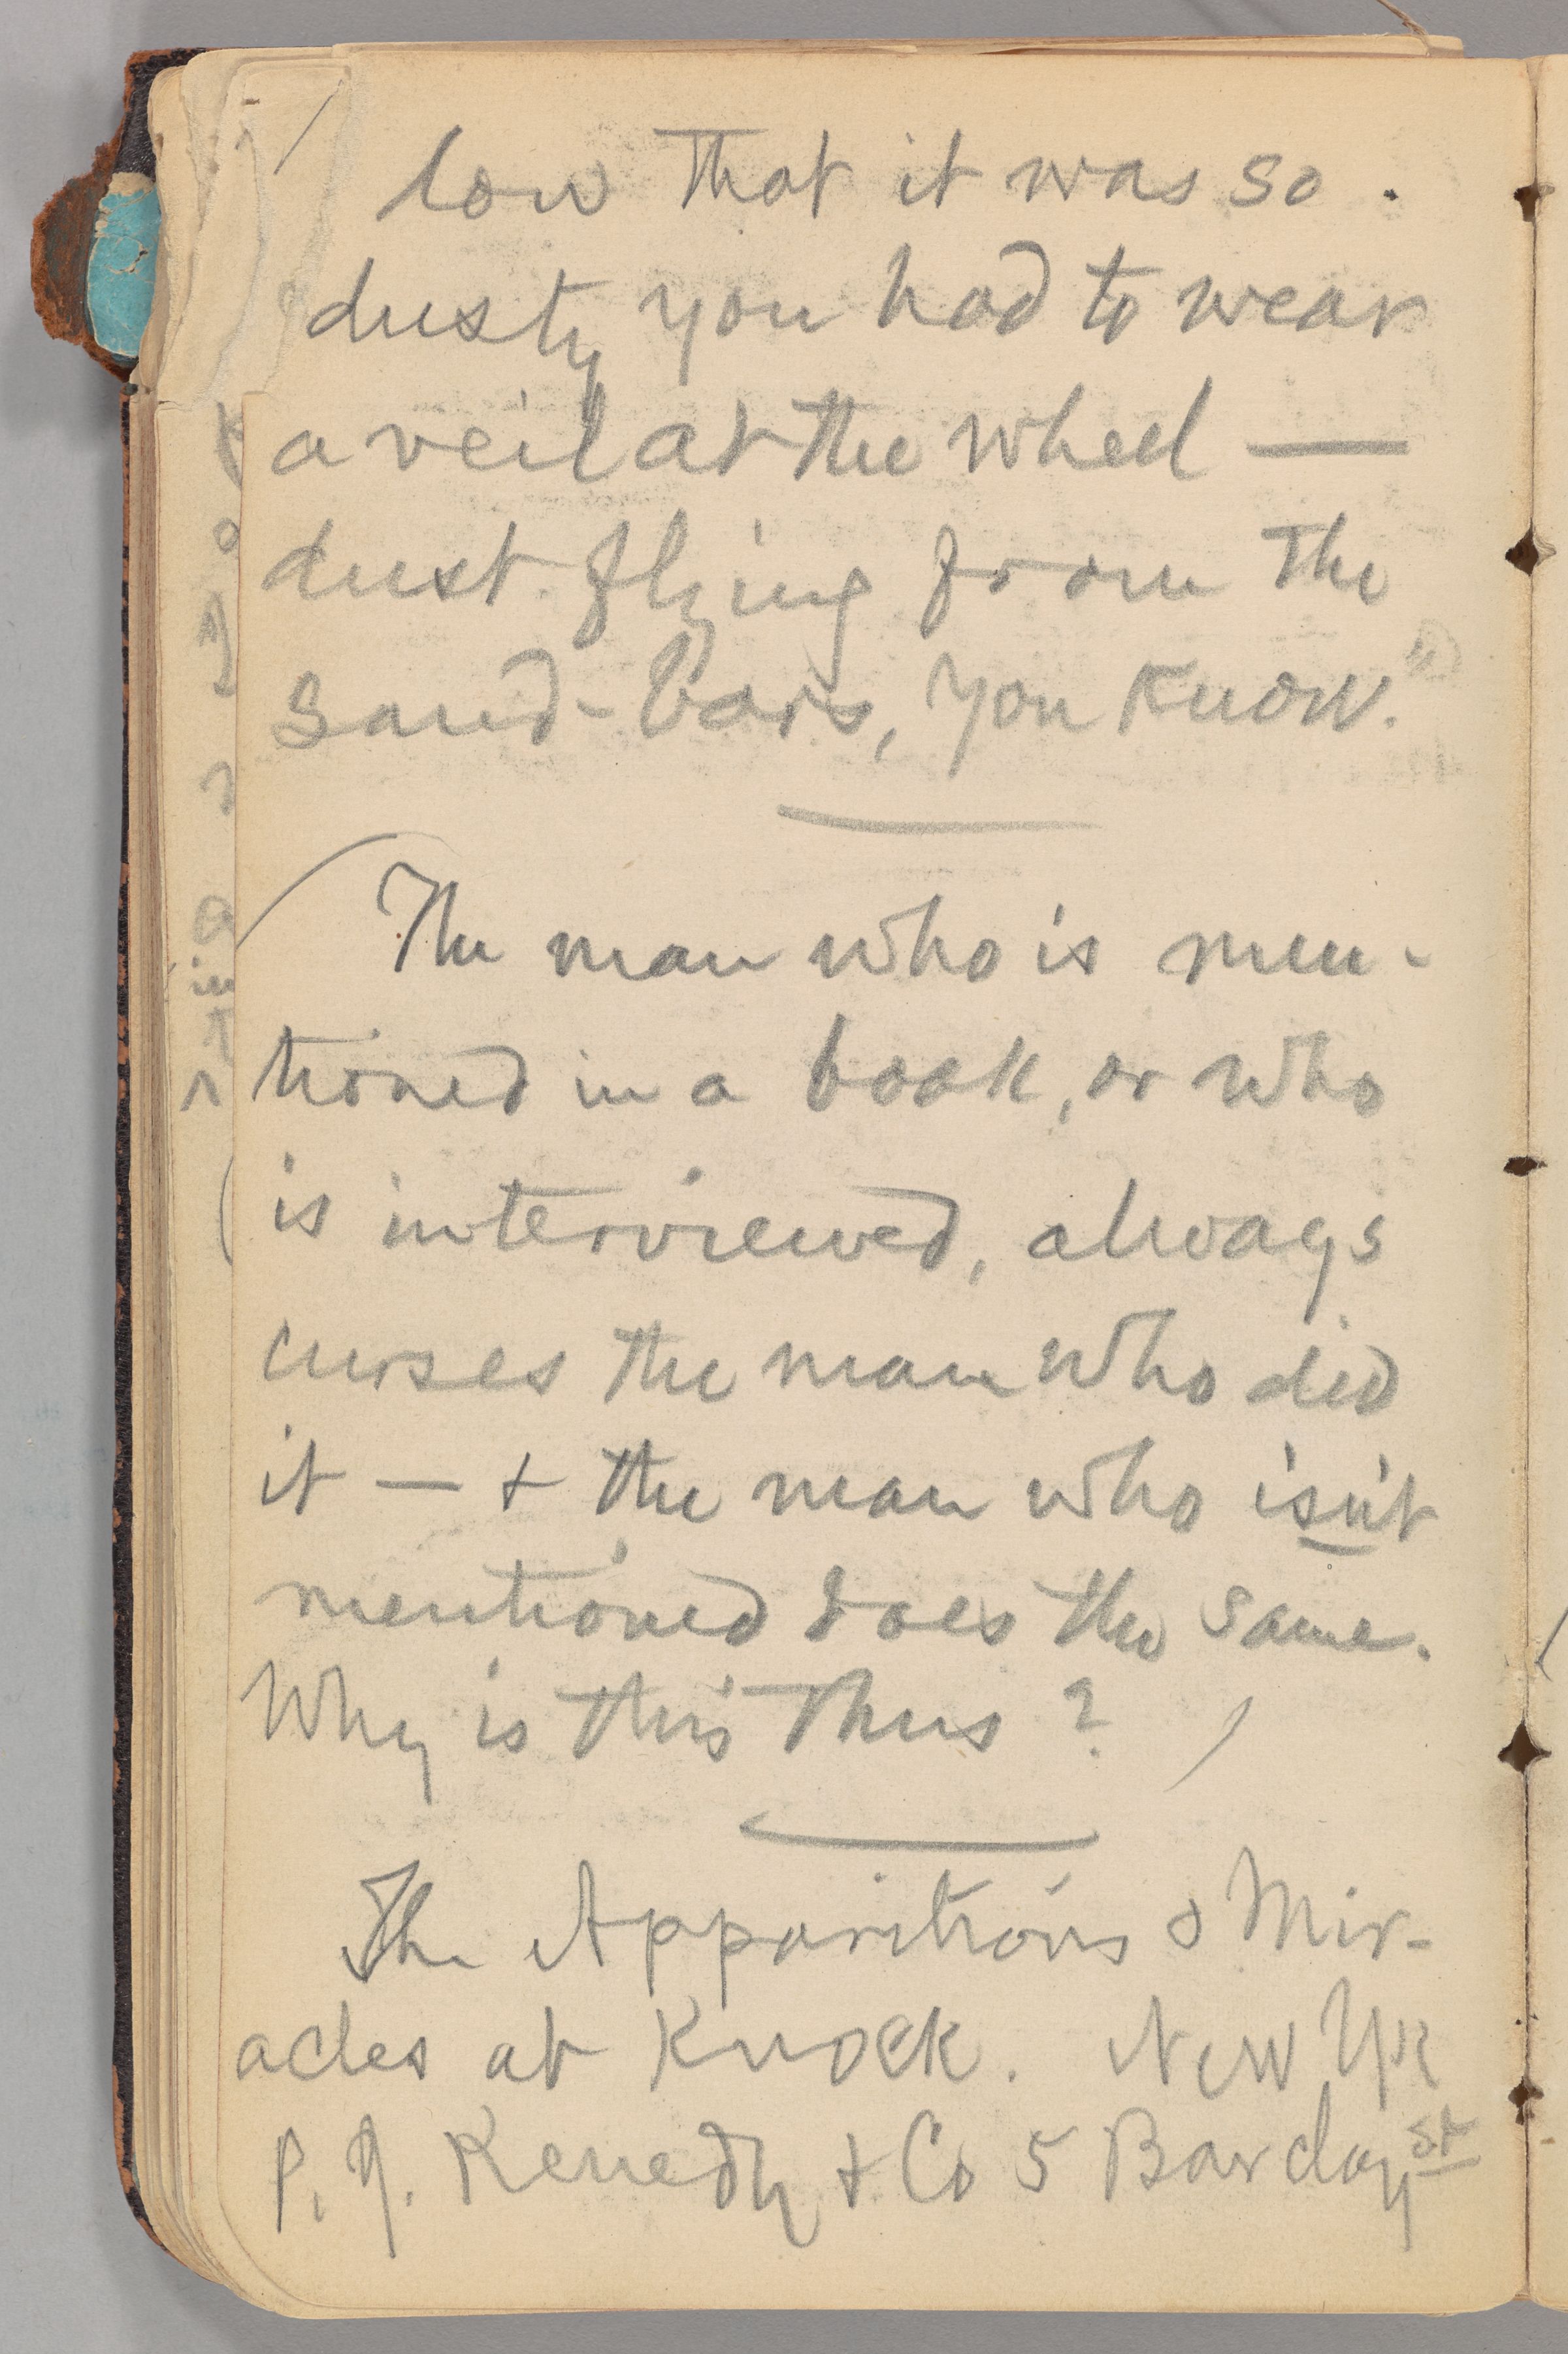 low that it was so
dusty you had to wear
a veil at the wheel —
dust flying from the
sand-bars, you know."
The man who is men-
tioned in a book, or who
is interviewed, always
curses the man who did
it — & the man who isn't
mentioned does the same.
Why is this thus?
The Apparitions & Mir-
acles at Knock. New Yk
P. J. Kenedy & Co 5 Barclay st